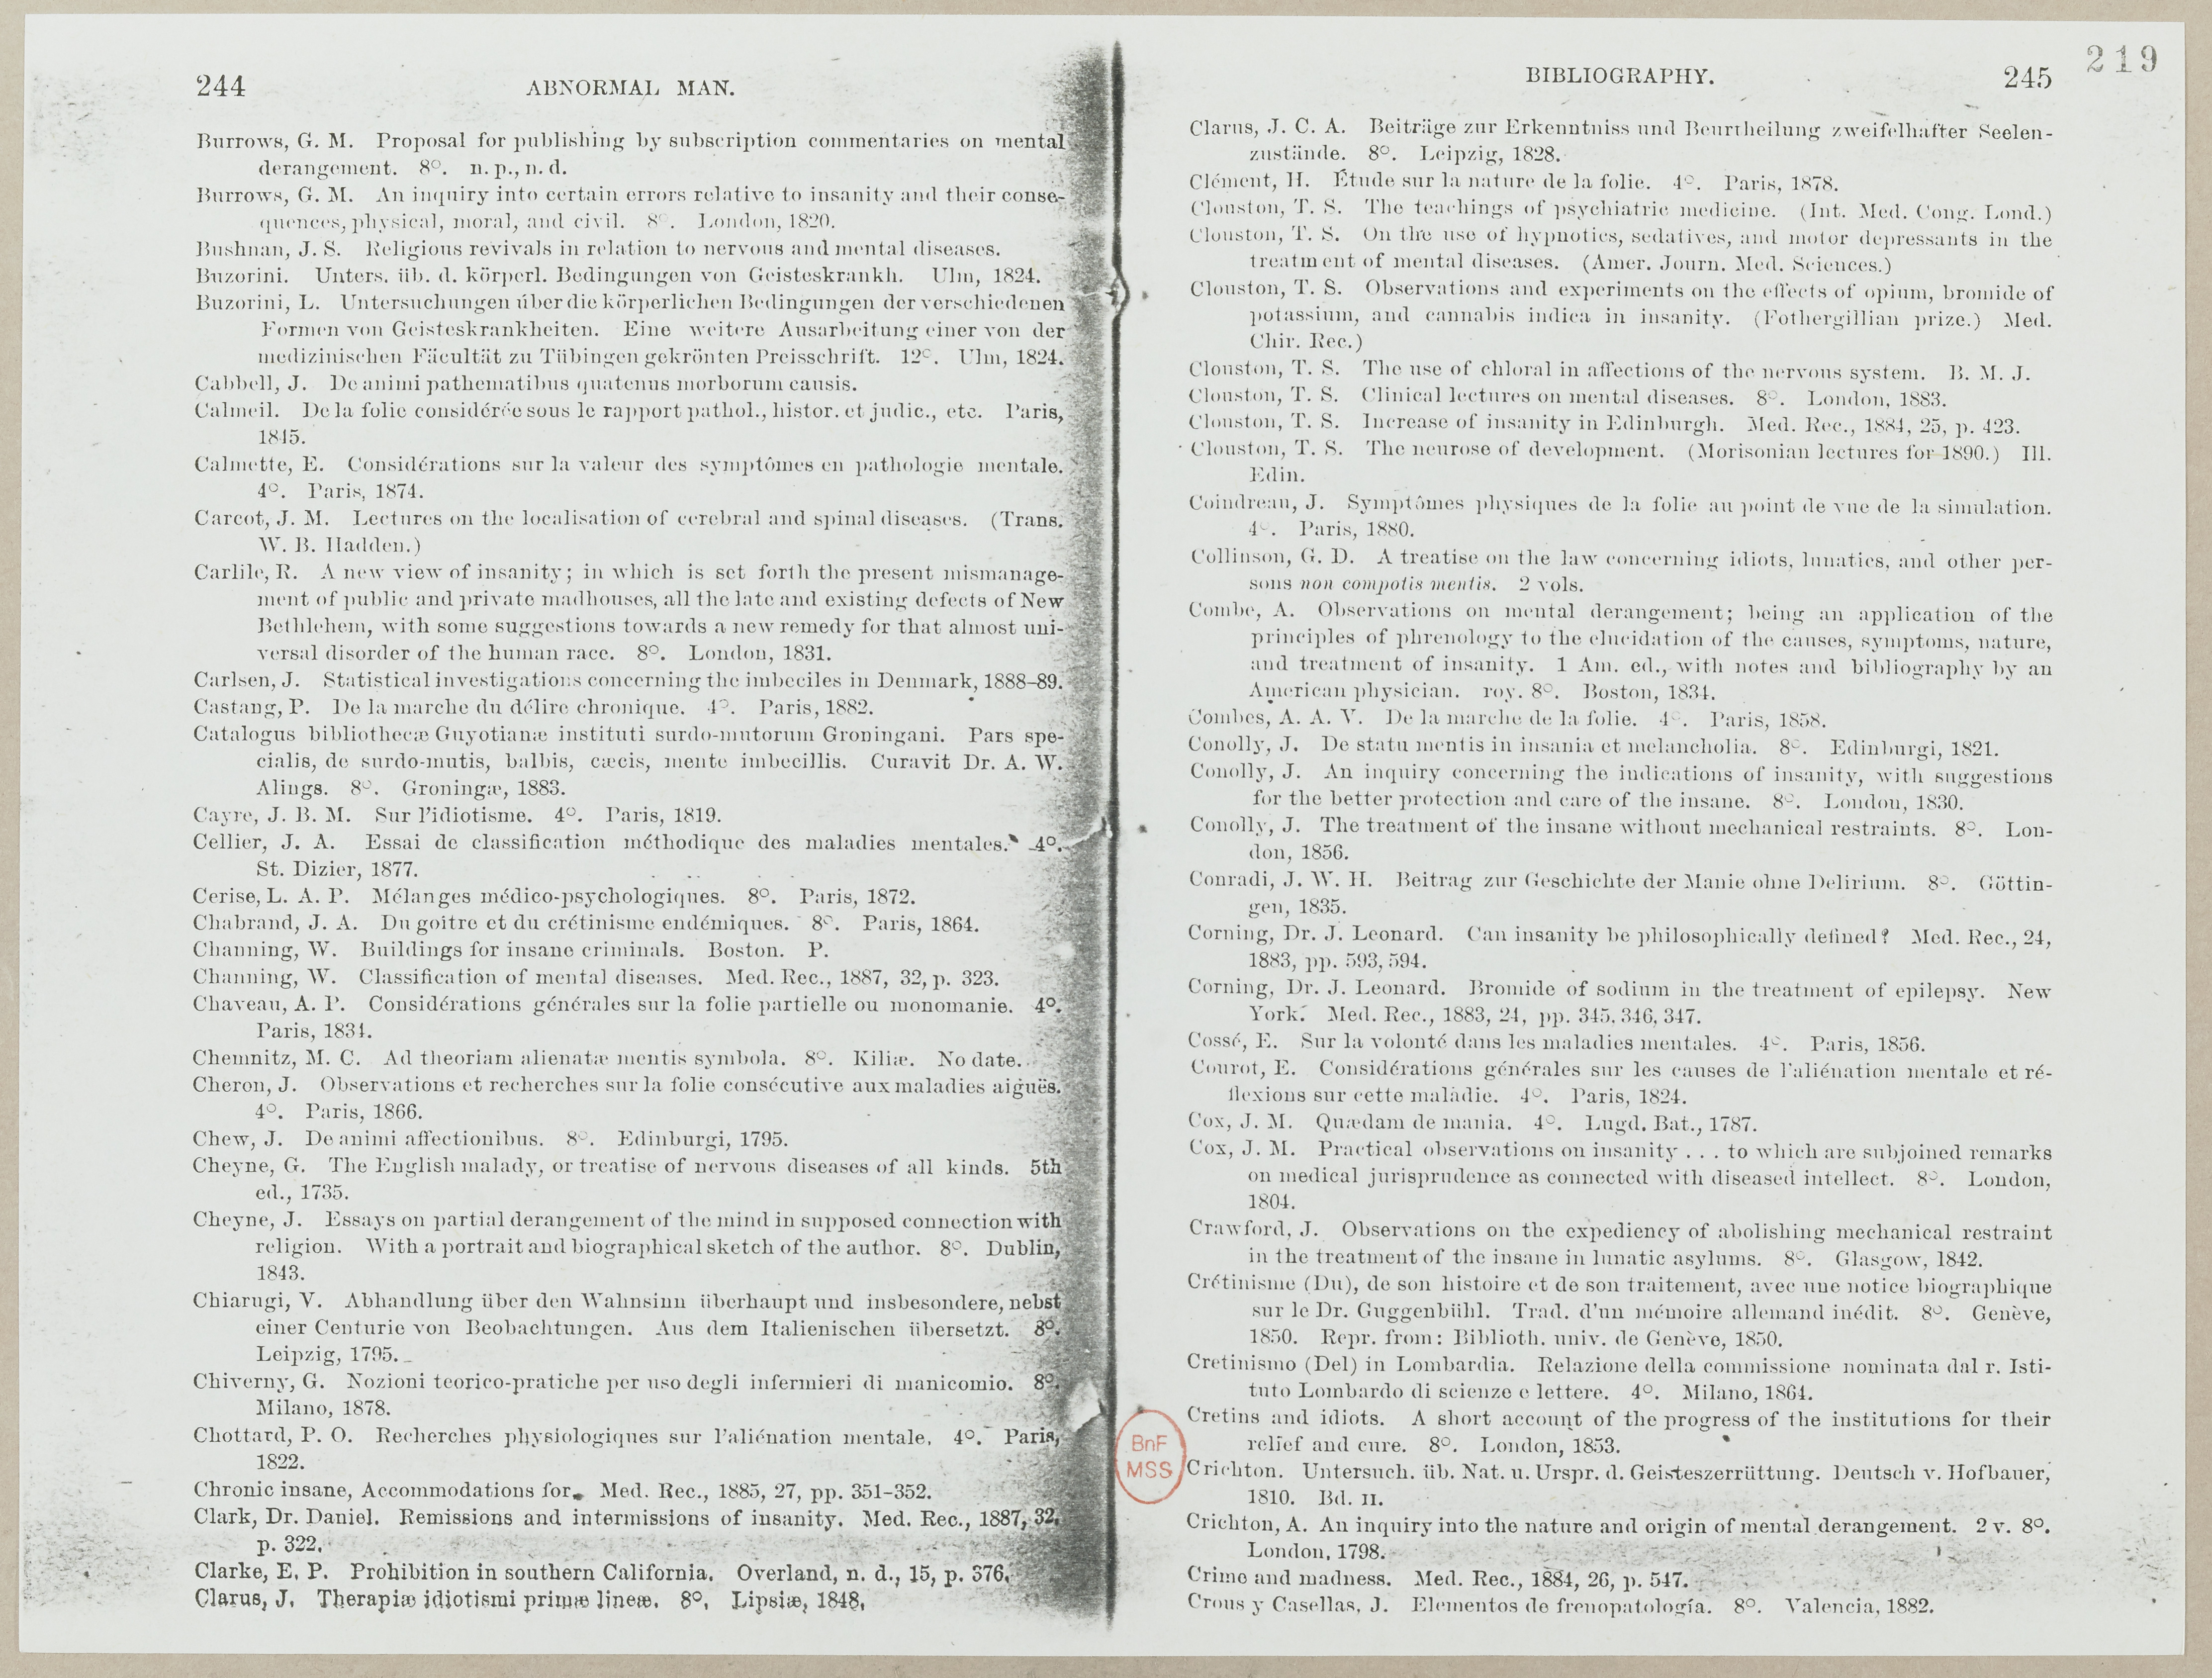 244
ABNORMAL MAN.
Burrows, G. M. Proposal for publishing by subscription commentaries on mental
derangement. 8°. n. p., n. d.
Burrows, G. M. An inquiry into certain errors relative to insanity and their conse-
quences, physical, moral, and civil. 8°. London, 1820.
Bushnan, J. S. Religious revivals in relation to nervous and mental diseases.
Buzorini. Unters. üb. d. körperl. Bedingungen von Geisteskrankh. Ulm, 1824.
Buzorini, L. Untersuchungen über die körperlichen Bedingungen der verschiedenen
Formen von Geisteskrankheiten. Eine weitere Ausarbeitung einer von der
medizinischen Fäcultät zu Tübingen gekrönten Preisschrift. 12°. Ulm, 1824.
Cabbell, J. De animi pathematibus quatenus morborum causis.
Calmeil. De la folie considérée sous le rapport pathol., histor. et judic., etc. Paris,
1845.
Calmette, E. Considérations sur la valeur des symptômes en pathologie mentale.
4°. Paris, 1874.
Carcot, J. M. Lectures on the localisation of cerebral and spinal diseases. (Trans.
W. B. Hadden.)
Carlile, R. A new view of insanity; in which is set forth the present mismanage-
ment of public and private madhouses, all the late and existing defects of New
Bethlehem, with some suggestions towards a new remedy for that almost uni-
versal disorder of the human race. 8°. London, 1831.
Carlsen, J. Statistical investigations concerning the imbeciles in Denmark, 1888–89.
Castang, P. De la marche du délire chronique. 4°. Paris, 1882.
Catalogus bibliothecæ Guyotianæ instituti surdo-mutorum Groningani. Pars spe-
cialis, de surdo-mutis, balbis, cæcis, mente imbecillis. Curavit Dr. A. W.
Alings. 8°. Groningæ, 1883.
Cayre, J. B. M. Sur l'idiotisme. 4°. Paris, 1819.
Cellier, J. A. Essai de classification méthodique des maladies mentales. 4°.
St. Dizier, 1877.
Cerise, L. A. P. Mélanges médico-psychologiques. 8°. Paris, 1872.
Chabrand, J. A. Du goître et du crétinisme endémiques. 8°. Paris, 1864.
Channing, W. Buildings for insane criminals. Boston. P.
Channing, W. Classification of mental diseases. Med. Rec., 1887, 32, p. 323.
Chaveau, A. P. Considérations générales sur la folie partielle ou monomanie. 4°.
Paris, 1834.
Chemnitz, M. C. Ad theoriam alienatæ mentis symbola. 8°. Kiliæ. No date.
Cheron, J. Observations et recherches sur la folie consécutive aux maladies aiguës.
4°. Paris, 1866.
Chew, J. De animi affectionibus. 8°. Edinburgi, 1795.
Cheyne, G. The English malady, or treatise of nervous diseases of all kinds. 5th
ed., 1735.
Cheyne, J. Essays on partial derangement of the mind in supposed connection with
religion. With a portrait and biographical sketch of the author. 8°. Dublin,
1843.
Chiarugi, V. Abhandlung über den Wahnsinn überhaupt und insbesondere, nebst
einer Centurie von Beobachtungen. Aus dem Italienischen übersetzt. 8°.
Leipzig, 1795.
Chiverny, G. Nozioni teorico-pratiche per uso degli infermieri di manicomio. 8°.
Milano, 1878.
Chottard, P. O. Recherches physiologiques sur l'aliénation mentale. 4°. Paris,
1822.
Chronic insane, Accommodations for. Med. Rec., 1885, 27, pp. 351–352.
Clark, Dr. Daniel. Remissions and intermissions of insanity. Med. Rec., 1887, 32,
p. 322.
Clarke, E. P. Prohibition in southern California. Overland, n. d., 15, p. 376.
Clarus, J. Therapiæ idiotismi primæ lineæ. 8°. Lipsiæ, 1848.
BIBLIOGRAPHY.
245
219
Clarus, J. C. A. Beiträge zur Erkenntniss und Beurtheilung zweifelhafter Seelen-
zustände. 8°. Leipzig, 1828.
Clément, H. Étude sur la nature de la folie. 4°. Paris, 1878.
Clouston, T. S. The teachings of psychiatric medicine. (Int. Med. Cong. Lond.)
Clouston, T. S. On the use of hypnotics, sedatives, and motor depressants in the
treatment of mental diseases. (Amer. Journ. Med. Sciences.)
Clouston, T. S. Observations and experiments on the effects of opium, bromide of
potassium, and cannabis indica in insanity. (Fothergillian prize.) Med.
Chir. Rec.)
Clouston, T. S. The use of chloral in affections of the nervous system. B. M. J.
Clouston, T. S. Clinical lectures on mental diseases. 8°. London, 1883.
Clouston, T. S. Increase of insanity in Edinburgh. Med. Rec., 1884, 25, p. 423.
Clouston, T. S. The neurose of development. (Morisonian lectures for 1890.) Ill.
Edin.
Coindreau, J. Symptômes physiques de la folie au point de vue de la simulation.
4°. Paris, 1880.
Collinson, G. D. A treatise on the law concerning idiots, lunatics, and other per-
sons non compotis mentis. 2 vols.
Combe, A. Observations on mental derangement; being an application of the
principles of phrenology to the elucidation of the causes, symptoms, nature,
and treatment of insanity. 1 Am. ed., with notes and bibliography by an
American physician. roy. 8°. Boston, 1834.
Combes, A. A. V. De la marche de la folie. 4°. Paris, 1858.
Conolly, J. De statu mentis in insania et melancholia. 8°. Edinburgi, 1821.
Conolly, J. An inquiry concerning the indications of insanity, with suggestions
for the better protection and care of the insane. 8°. London, 1830.
Conolly, J. The treatment of the insane without mechanical restraints. 8°. Lon-
don, 1856.
Conradi, J. W. H. Beitrag zur Geschichte der Manie ohne Delirium. 8°. Göttin-
gen, 1835.
Corning, Dr. J. Leonard. Can insanity be philosophically defined? Med. Rec., 24,
1883, pp. 593, 594.
Corning, Dr. J. Leonard. Bromide of sodium in the treatment of epilepsy. New
York. Med. Rec., 1883, 24, pp. 345, 346, 347.
Cossé, E. Sur la volonté dans les maladies mentales. 4°. Paris, 1856.
Courot, E. Considérations générales sur les causes de l'aliénation mentale et ré-
flexions sur cette maladie. 4°. Paris, 1824.
Cox, J. M. Quædam de mania. 4°. Lugd. Bat., 1787.
Cox, J. M. Practical observations on insanity . . . to which are subjoined remarks
on medical jurisprudence as connected with diseased intellect. 8°. London,
1804.
Crawford, J. Observations on the expediency of abolishing mechanical restraint
in the treatment of the insane in lunatic asylums. 8°. Glasgow, 1842.
Crétinisme (Du), de son histoire et de son traitement, avec une notice biographique
sur le Dr. Guggenbühl. Trad. d'un mémoire allemand inédit. 8°. Genève,
1850. Repr. from: Biblioth. univ. de Genève, 1850.
Cretinismo (Del) in Lombardia. Relazione della commissione nominata dal r. Isti-
tuto Lombardo di scienze e lettere. 4°. Milano, 1864.
Cretins and idiots. A short account of the progress of the institutions for their
relief and cure. 8°. London, 1853.
Crichton. Untersuch. üb. Nat. u. Urspr. d. Geisteszerrüttung. Deutsch v. Hofbauer,
1810. Bd. II.
Crichton, A. An inquiry into the nature and origin of mental derangement. 2 v. 8°.
London, 1798.
Crime and madness. Med. Rec., 1884, 26, p. 547.
Crous y Casellas, J. Elementos de frenopatología. 8°. Valencia, 1882.
BnF
MSS